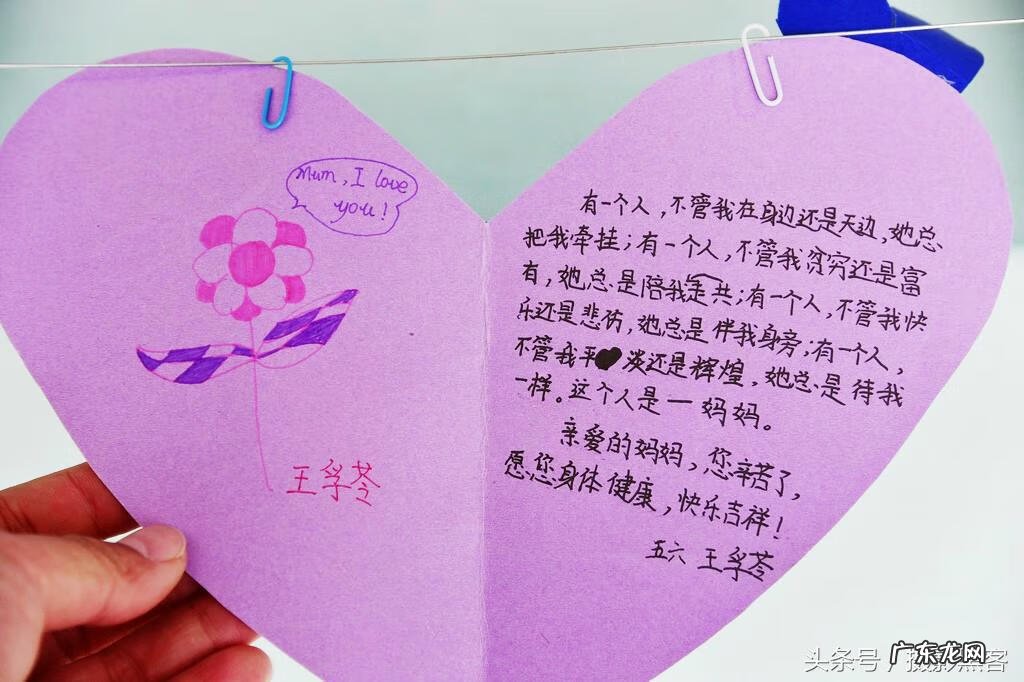 Mum, I love
you!
王孚苓
有一个人,不管我在身边还是天边,她总
把我牵挂;有一个人,不管我贫穷还是富
有,她总是陪我走共;有一个人,不管我快
乐还是悲伤,她总是伴我身旁;有一个人,
不管我平淡还是辉煌,她总是待我
一样。这个人是一妈妈。
亲爱的妈妈,您辛苦了,
愿您身体健康,快乐吉祥!
五六 王孚苓
头条号
广东龙网